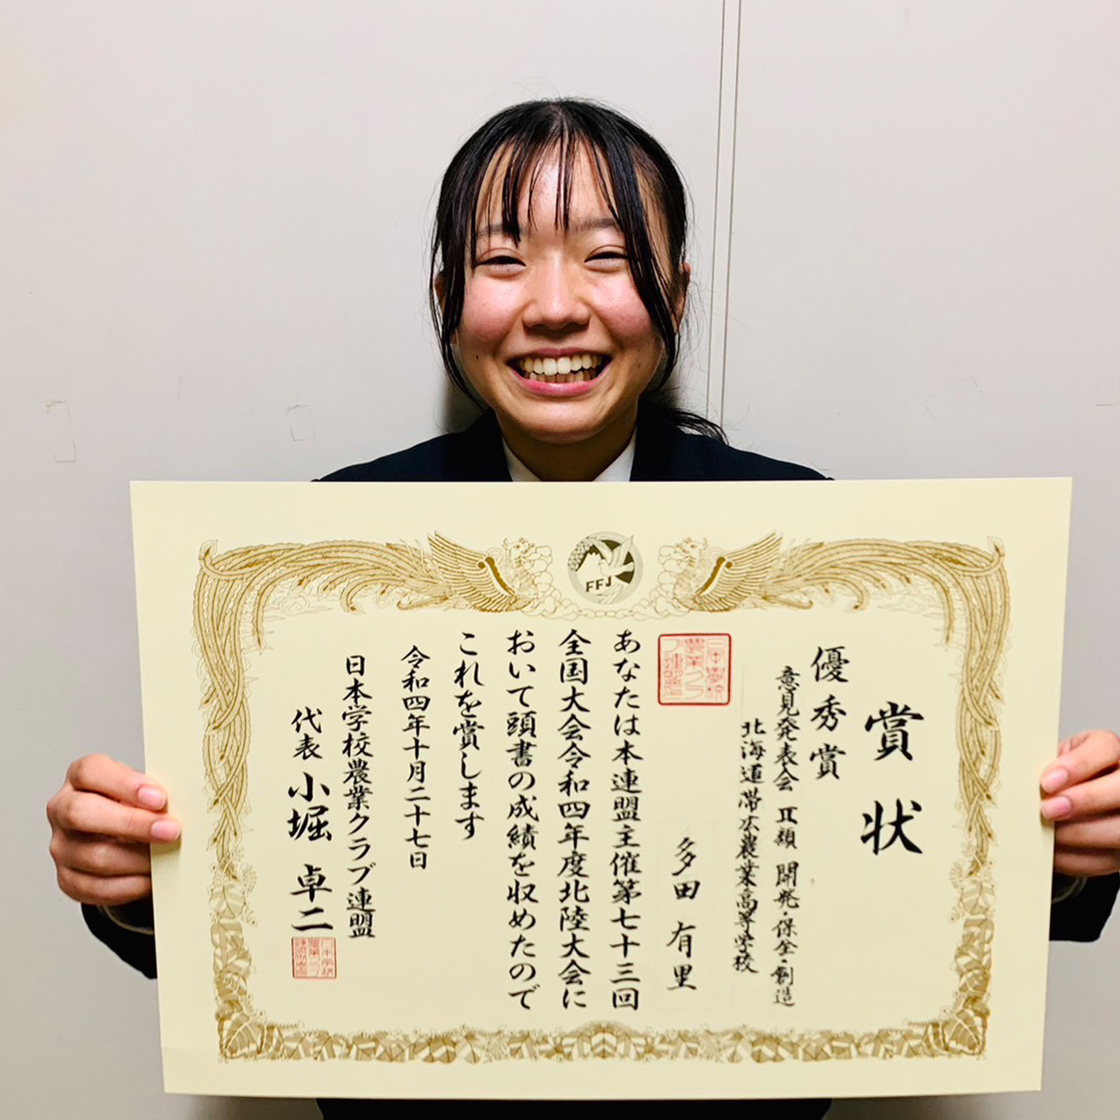 賞状
優秀賞
意見発表会 Ⅱ類 開発・保全・創造
北海道帯広農業高等学校
多田 有里
あなたは本連盟主催第七十三回
全国大会令和四年度北陸大会に
おいて頭書の成績を収めたので
これを賞します
令和四年十月二十七日
日本学校農業クラブ連盟
代表 小堀 卓二
FFJ